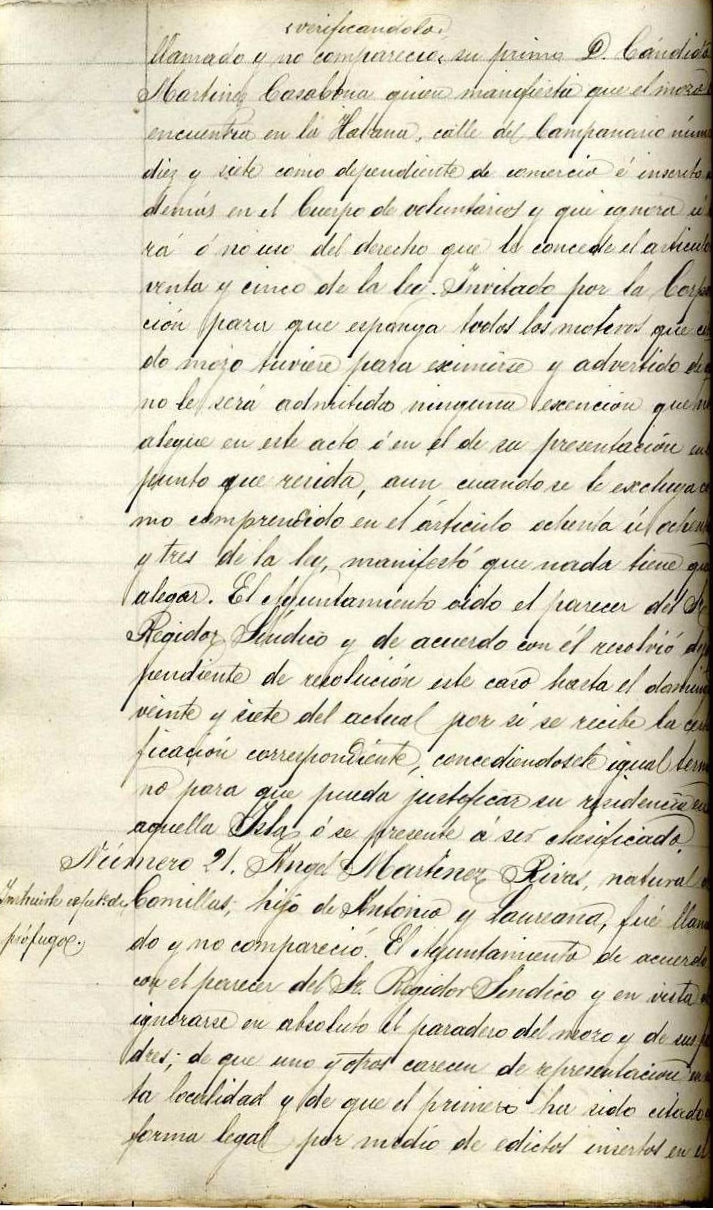 (verificandolo)
llamado y no compareció, su primo D. Cándido
Martinez Casabona quien manifiesta que el mozo
encuentra en la Habana, calle del Campanario núm
diez y siete como dependiente de comercio é inscrito
demás en el Cuerpo de voluntarios y que ignora si
rá ó nó uso del derecho que le concede el articulo
venta y cinco de la ley. Invitado por la Corpo
ción para que esponga todos los motivos que
do mozo tuviere para eximirse y advertido de
no le será admitida ninguna exención que no
alegue en este acto ó en el de su presentación en
punto que resida, aun cuando se le excluya co
mo comprendido en el árticulo ochenta ú ochen
y tres de la ley, manifestó que nada tiene que
alegar. El Ayuntamiento oido el parecer del Sr.
Regidor Síndico y de acuerdo con él resolvió dej
pendiente de resolución este caso hasta el domin
veinte y siete del actual por si se recibe la cer
ficación correspondiente, concediendosele igual term
no para que pueda justificar su residencia en
aquella Isla ó se presente á ser clasificado.
Número 21. Angel Martinez Rivas, natural d
Instruirle espte. de
prófugo.
Comillas, hijo de Antonio y Laureana, fué llama
do y no compareció. El Ayuntamiento de acuerdo
con el parecer del Sr. Regidor Síndico y en vista
ignorarse en absoluto el paradero del mozo y de sus pa
dres; de que uno y otros carecen de representación en
ta localidad y de que el primero ha sido citado
forma legal por medio de edictos insertos en el